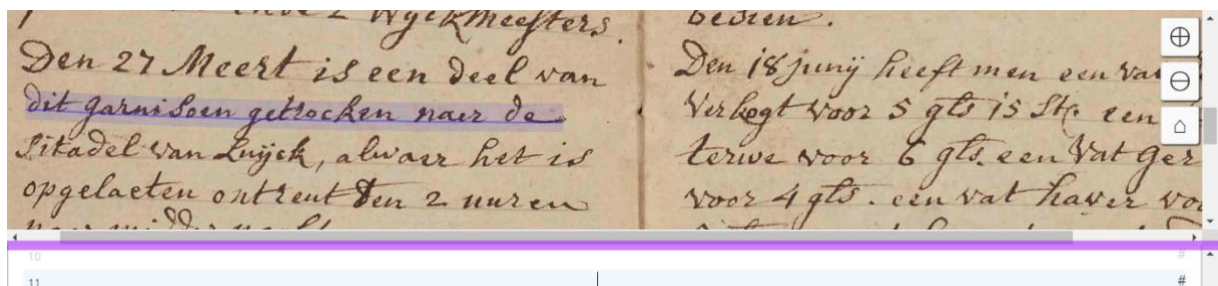 ende 2 Wyckmeesters.
Den 27 Meert is een deel van
dit garnisoen getrocken naer de
Sitadel van Luyck, alwaer het is
opgelaeten ontrent den 2 uuren
naer midder nacht
bedien.
Den 18 junij heeft men een vat
verkogt voor 5 gls 15 St. een
terwe voor 6 gls. een vat ger
voor 4 gls. een vat haver vo
10 #
11 #